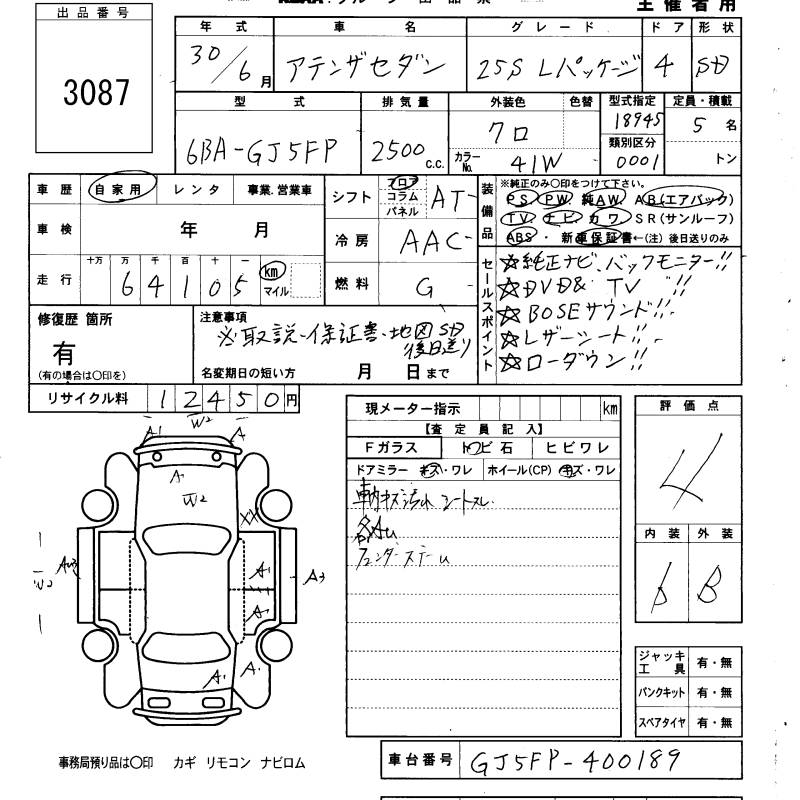 出品番号
3087
主催者用
年式 車名 グレード ドア 形状
30/6月 アテンザセダン 25S Lパッケージ 4 SD
型式 排気量 外装色 色替 型式指定 定員・積載
6BA-GJ5FP 2500c.c. クロ 18945 5名
カラーNo. 41W 類別区分 0001 トン
車歴 自家用 レンタ 事業.営業車
車検 年 月
走行 十万 万 千 百 十 一 km
64105 マイル
シフト フロア コラム パネル AT
冷房 AAC
燃料 G
装備品
※純正のみ〇印をつけて下さい。
PS PW 純AW AB(エアバック)
TV ナビ カワ SR(サンルーフ)
ABS・新車保証書←(注)後日送りのみ
セールスポイント
☆純正ナビ、バックモニター!!
☆DVD& TV!!
☆BOSEサウンド!!
☆レザーシート!!
☆ローダウン!!
修復歴 箇所
有
(有の場合は〇印を)
注意事項
※取説・保証書・地図SD
後日送り
名変期日の短い方 月 日まで
リサイクル料 12450円
現メーター指示 km
【査定員記入】
Fガラス トビ石 ヒビワレ
ドアミラー キズ・ワレ ホイール(CP) キズ・ワレ
車内キズ汚れ シートスレ
各AU
評価点
4
内装 外装
b B
W2
A1 A
A1
W2
XX
A1
A1
A3
W2
A1 A1
ジャッキ工具 有・無
パンクキット 有・無
スペアタイヤ 有・無
事務局預り品は〇印 カギ リモコン ナビロム
車台番号 GJ5FP-400189